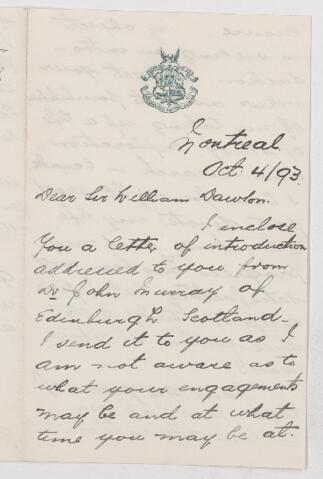 Montreal
Oct 4/93.
Dear Sir William Dawson.
I inclose
you a letter of introduction
addressed to you from
Dr John Murray of
Edinburgh, Scotland—
I send it to you as I
am not aware as to
what your engagements
may be and at what
time you may be at.